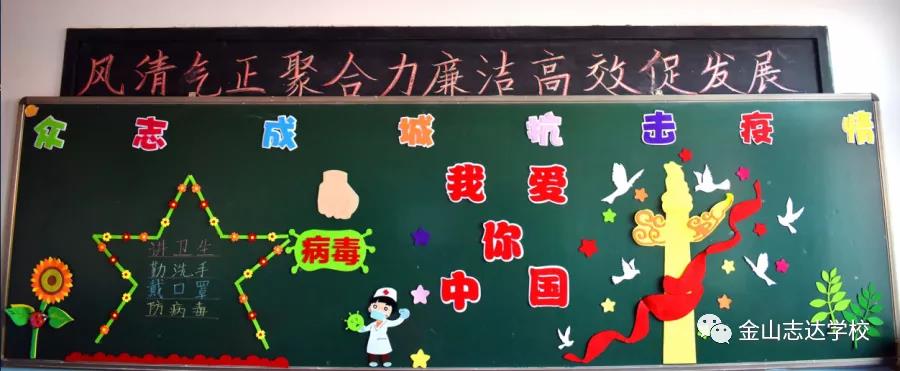 风清气正聚合力廉洁高效促发展
众志成城抗击疫情
我爱
你
中国
病毒
讲卫生
勤洗手
戴口罩
防病毒
金山志达学校